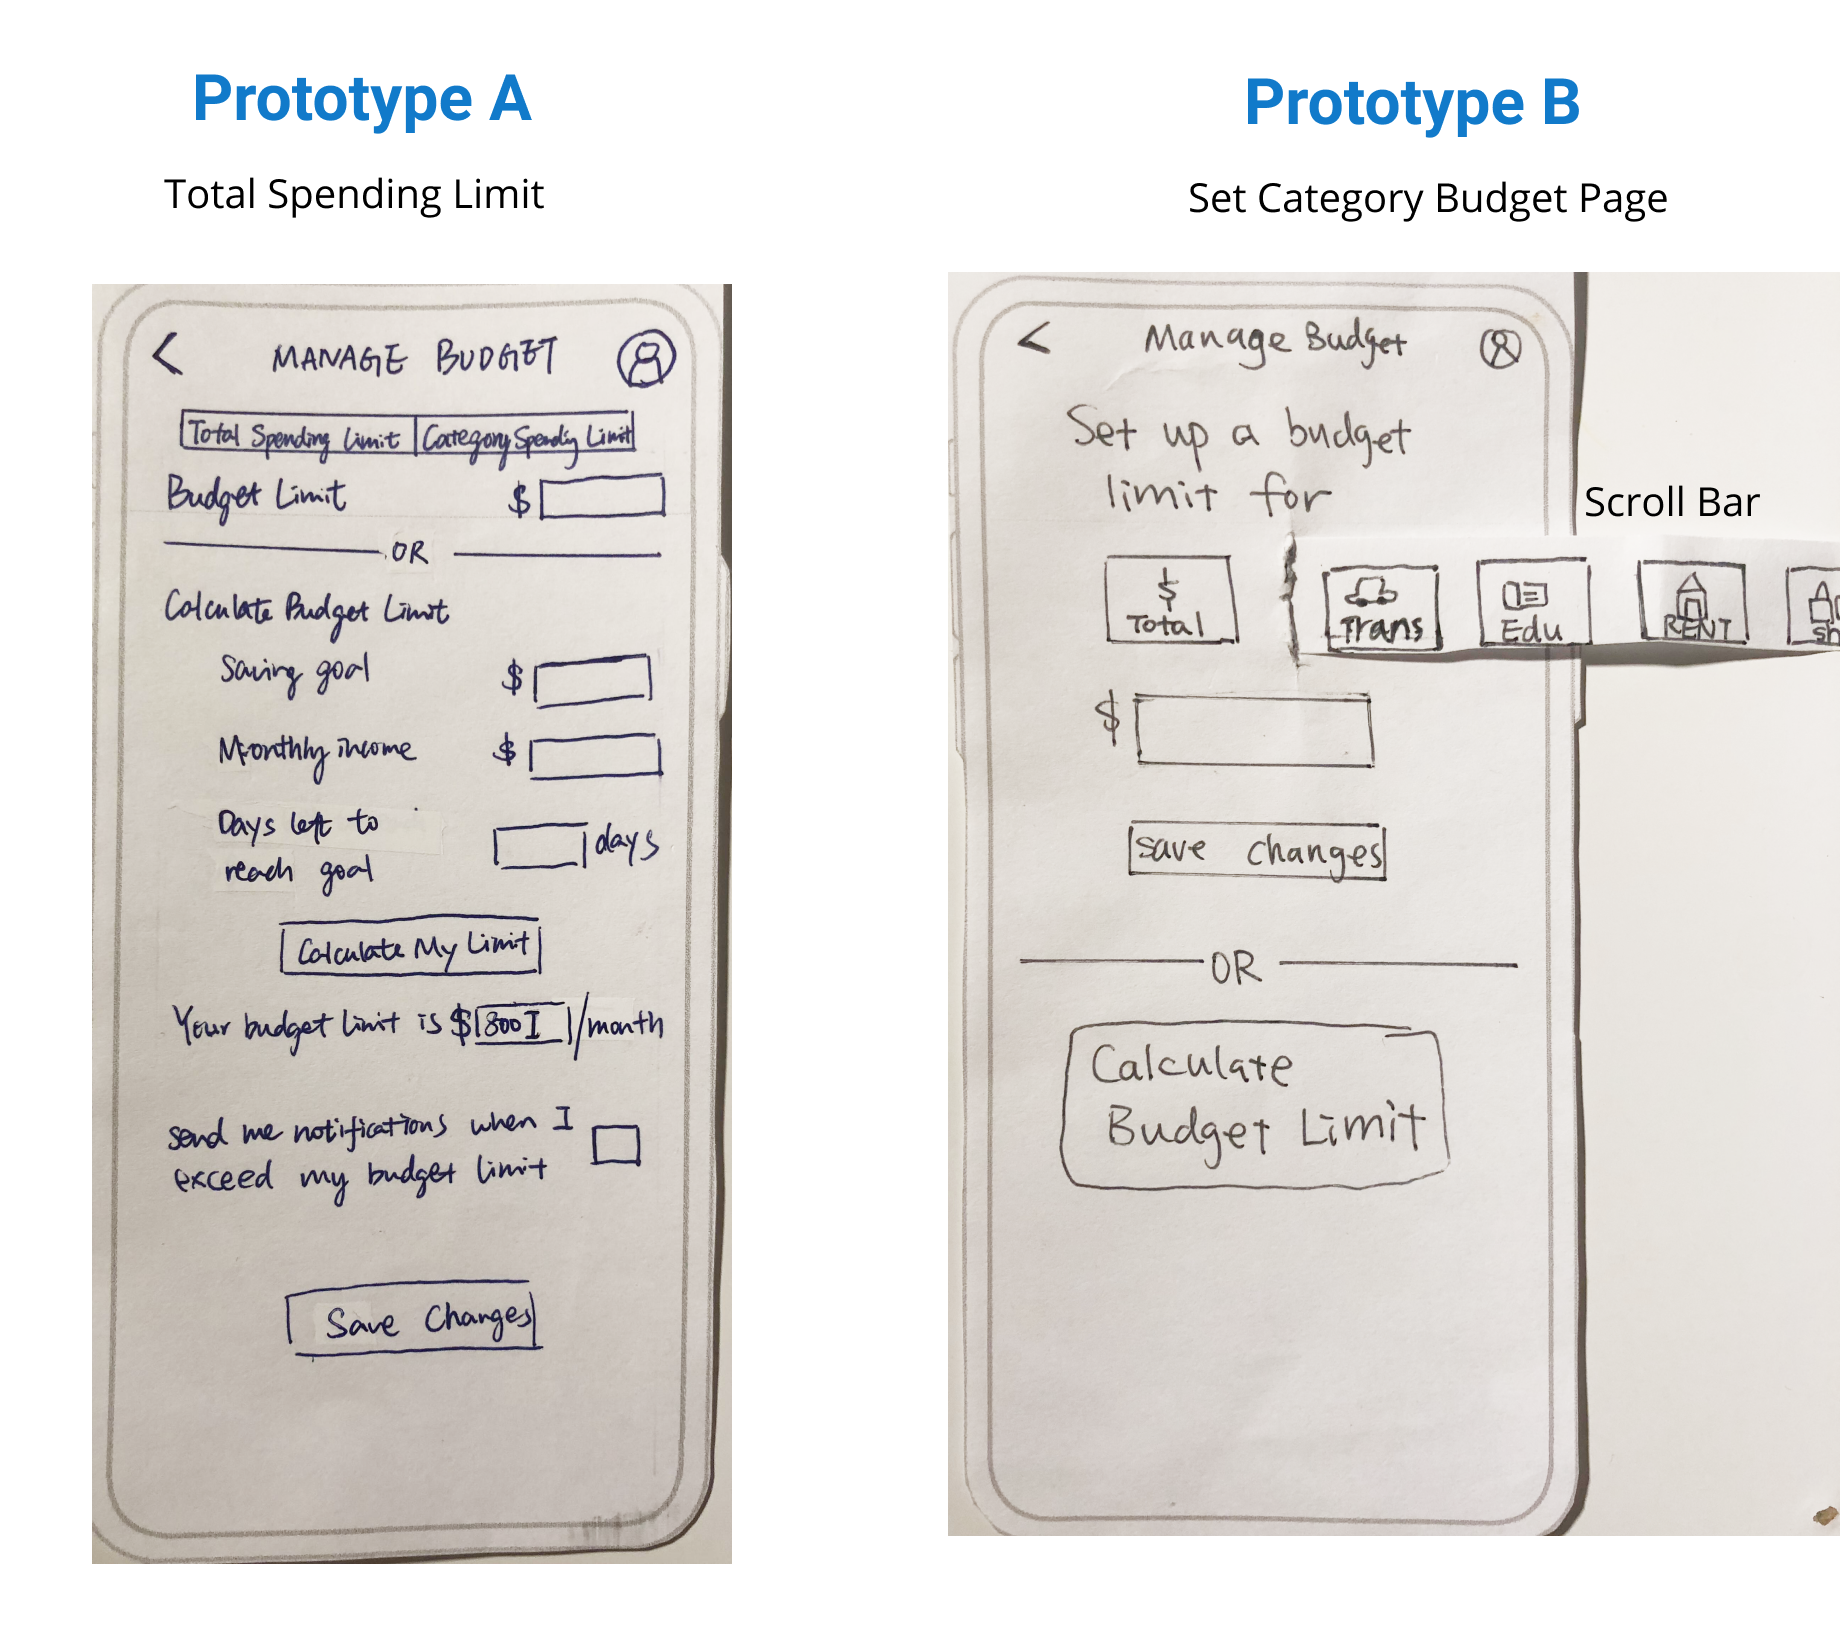 Prototype A
Total Spending Limit
<
MANAGE BUDGET
Total Spending Limit
Category Spending Limit
Budget Limit $
OR
Calculate Budget Limit
Saving goal $
Monthly income $
Days left to
reach goal
days
Calculate My Limit
Your budget limit is $1800 /month
send me notifications when I
exceed my budget limit
Save Changes
Prototype B
Set Category Budget Page
<
Manage Budget
Set up a budget
limit for
Scroll Bar
$
Total
Trans
Edu
RENT
sh
$
save changes
OR
Calculate
Budget Limit